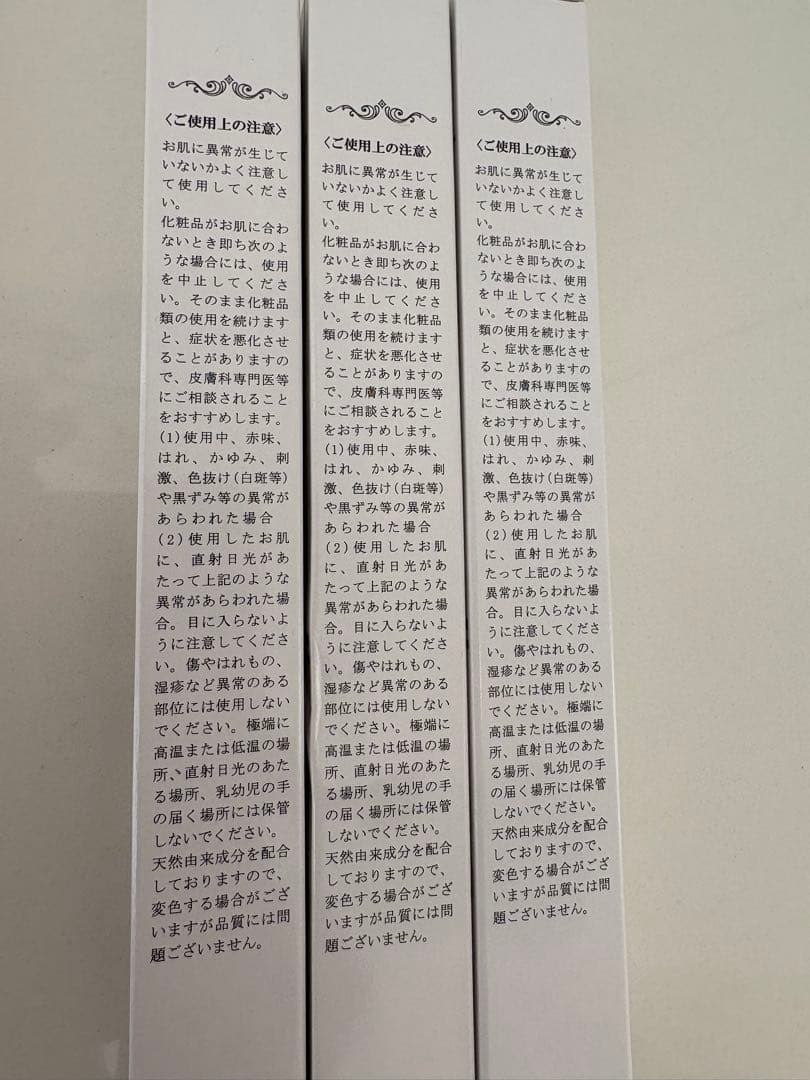 〈ご使用上の注意〉
お肌に異常が生じて
いないかよく注意し
て使用してくださ
い。
化粧品がお肌に合わ
ないとき即ち次のよ
うな場合には、使用
を中止してくださ
い。そのまま化粧品
類の使用を続けます
と、症状を悪化させ
ることがありますの
で、皮膚科専門医等
にご相談されること
をおすすめします。
(1)使用中、赤味、
はれ、かゆみ、刺
激、色抜け(白斑等)
や黒ずみ等の異常が
あらわれた場合
(2)使用したお肌
に、直射日光があ
たって上記のような
異常があらわれた場
合。目に入らないよ
うに注意してくださ
い。傷やはれもの、
湿疹など異常のある
部位には使用しない
でください。極端に
高温または低温の場
所、直射日光のあた
る場所、乳幼児の手
の届く場所には保管
しないでください。
天然由来成分を配合
しておりますので、
変色する場合がござ
いますが品質には問
題ございません。
〈ご使用上の注意〉
お肌に異常が生じて
いないかよく注意し
て使用してくださ
い。
化粧品がお肌に合わ
ないとき即ち次のよ
うな場合には、使用
を中止してくださ
い。そのまま化粧品
類の使用を続けます
と、症状を悪化させ
ることがありますの
で、皮膚科専門医等
にご相談されること
をおすすめします。
(1)使用中、赤味、
はれ、かゆみ、刺
激、色抜け(白斑等)
や黒ずみ等の異常が
あらわれた場合
(2)使用したお肌
に、直射日光があ
たって上記のような
異常があらわれた場
合。目に入らないよ
うに注意してくださ
い。傷やはれもの、
湿疹など異常のある
部位には使用しない
でください。極端に
高温または低温の場
所、直射日光のあた
る場所、乳幼児の手
の届く場所には保管
しないでください。
天然由来成分を配合
しておりますので、
変色する場合がござ
いますが品質には問
題ございません。
〈ご使用上の注意〉
お肌に異常が生じて
いないかよく注意し
て使用してくださ
い。
化粧品がお肌に合わ
ないとき即ち次のよ
うな場合には、使用
を中止してくださ
い。そのまま化粧品
類の使用を続けます
と、症状を悪化させ
ることがありますの
で、皮膚科専門医等
にご相談されること
をおすすめします。
(1)使用中、赤味、
はれ、かゆみ、刺
激、色抜け(白斑等)
や黒ずみ等の異常が
あらわれた場合
(2)使用したお肌
に、直射日光があ
たって上記のような
異常があらわれた場
合。目に入らないよ
うに注意してくださ
い。傷やはれもの、
湿疹など異常のある
部位には使用しない
でください。極端に
高温または低温の場
所、直射日光のあた
る場所、乳幼児の手
の届く場所には保管
しないでください。
天然由来成分を配合
しておりますので、
変色する場合がござ
いますが品質には問
題ございません。